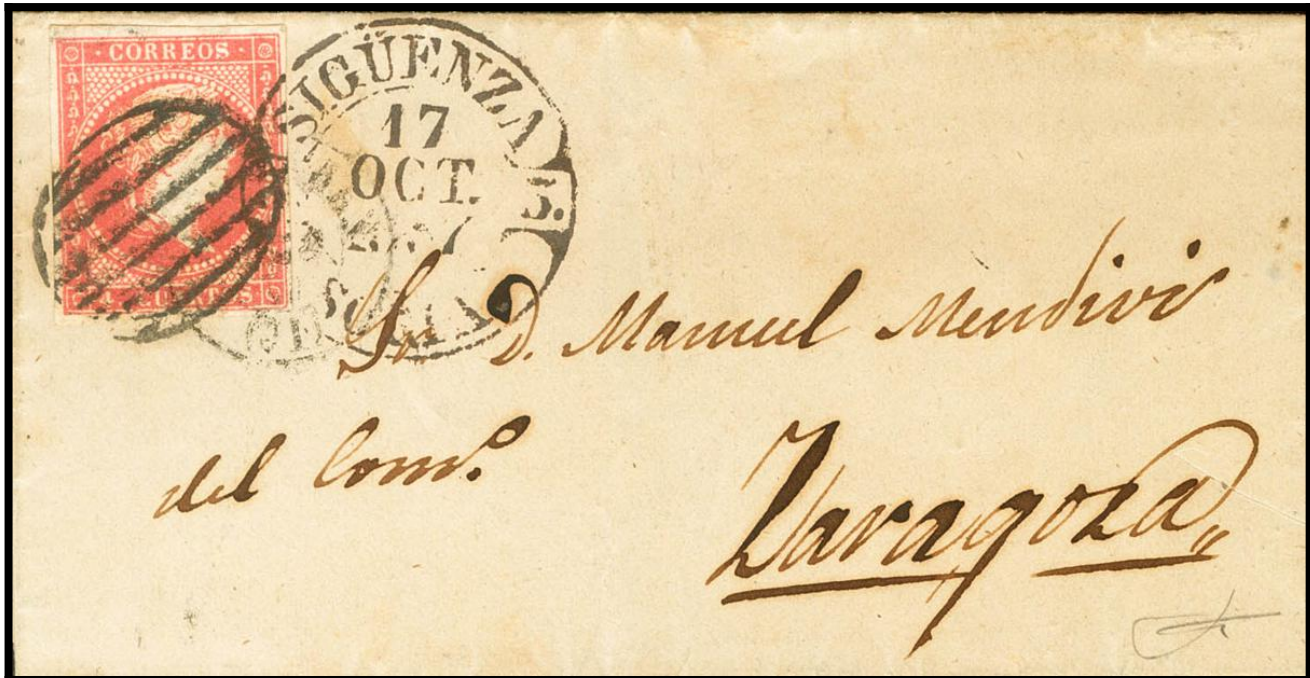 CORREOS
SIGÜENZA
17
OCT.
CUATOS
Sr D. Manuel Mendivi
del Comº.
Zaragoza